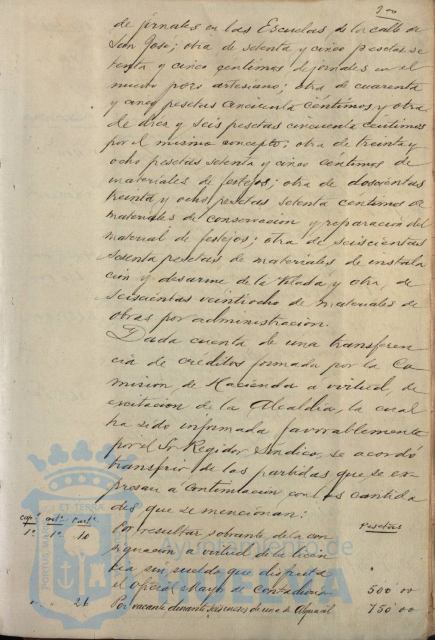 200
de jornales en las Escuelas de la calle de
San José; otra de setenta y cinco pesetas se
tenta y cinco centimos de jornales en el
nuevo pozo artesiano; otra de cuarenta
y cinco pesetas cincuenta centimos y otra
de diez y seis pesetas cincuenta centimos
por el mismo concepto; otra de treinta y
ocho pesetas setenta y cinco centimos de
materiales de festejos; otra de doscientas
treinta y ocho pesetas setenta centimos de
materiales de conservacion y reparacion del
material de festejos; otra de seiscientas
sesenta pesetas de materiales de instala
cion y desarme de la Velada y otra, de
seiscientas veintiocho de materiales de
obras por administracion.
Dada cuenta de una transferen
cia de créditos formada por la Co
mision, de Hacienda a virtud, de
excitacion de la Alcaldia, la cual
ha sido informada favorablemente
por el Sr Regidor Síndico, se acordó
transferir de las partidas que se ex
presan á continuacion con las cantida
des que se mencionan:
Capº artº Partª Pesetas
1º 1º 10 Por resultar sobrante de la con
signacion á virtud de la licen
cia sin sueldo que disfruta
el Oficial Mayor de Contaduria 500 00
" " 26 Por vacante durante seis meses de una de Alguacil 750 00
PORTUS MARIS
ET TERRÆ
Ayuntamiento de
HUELVA